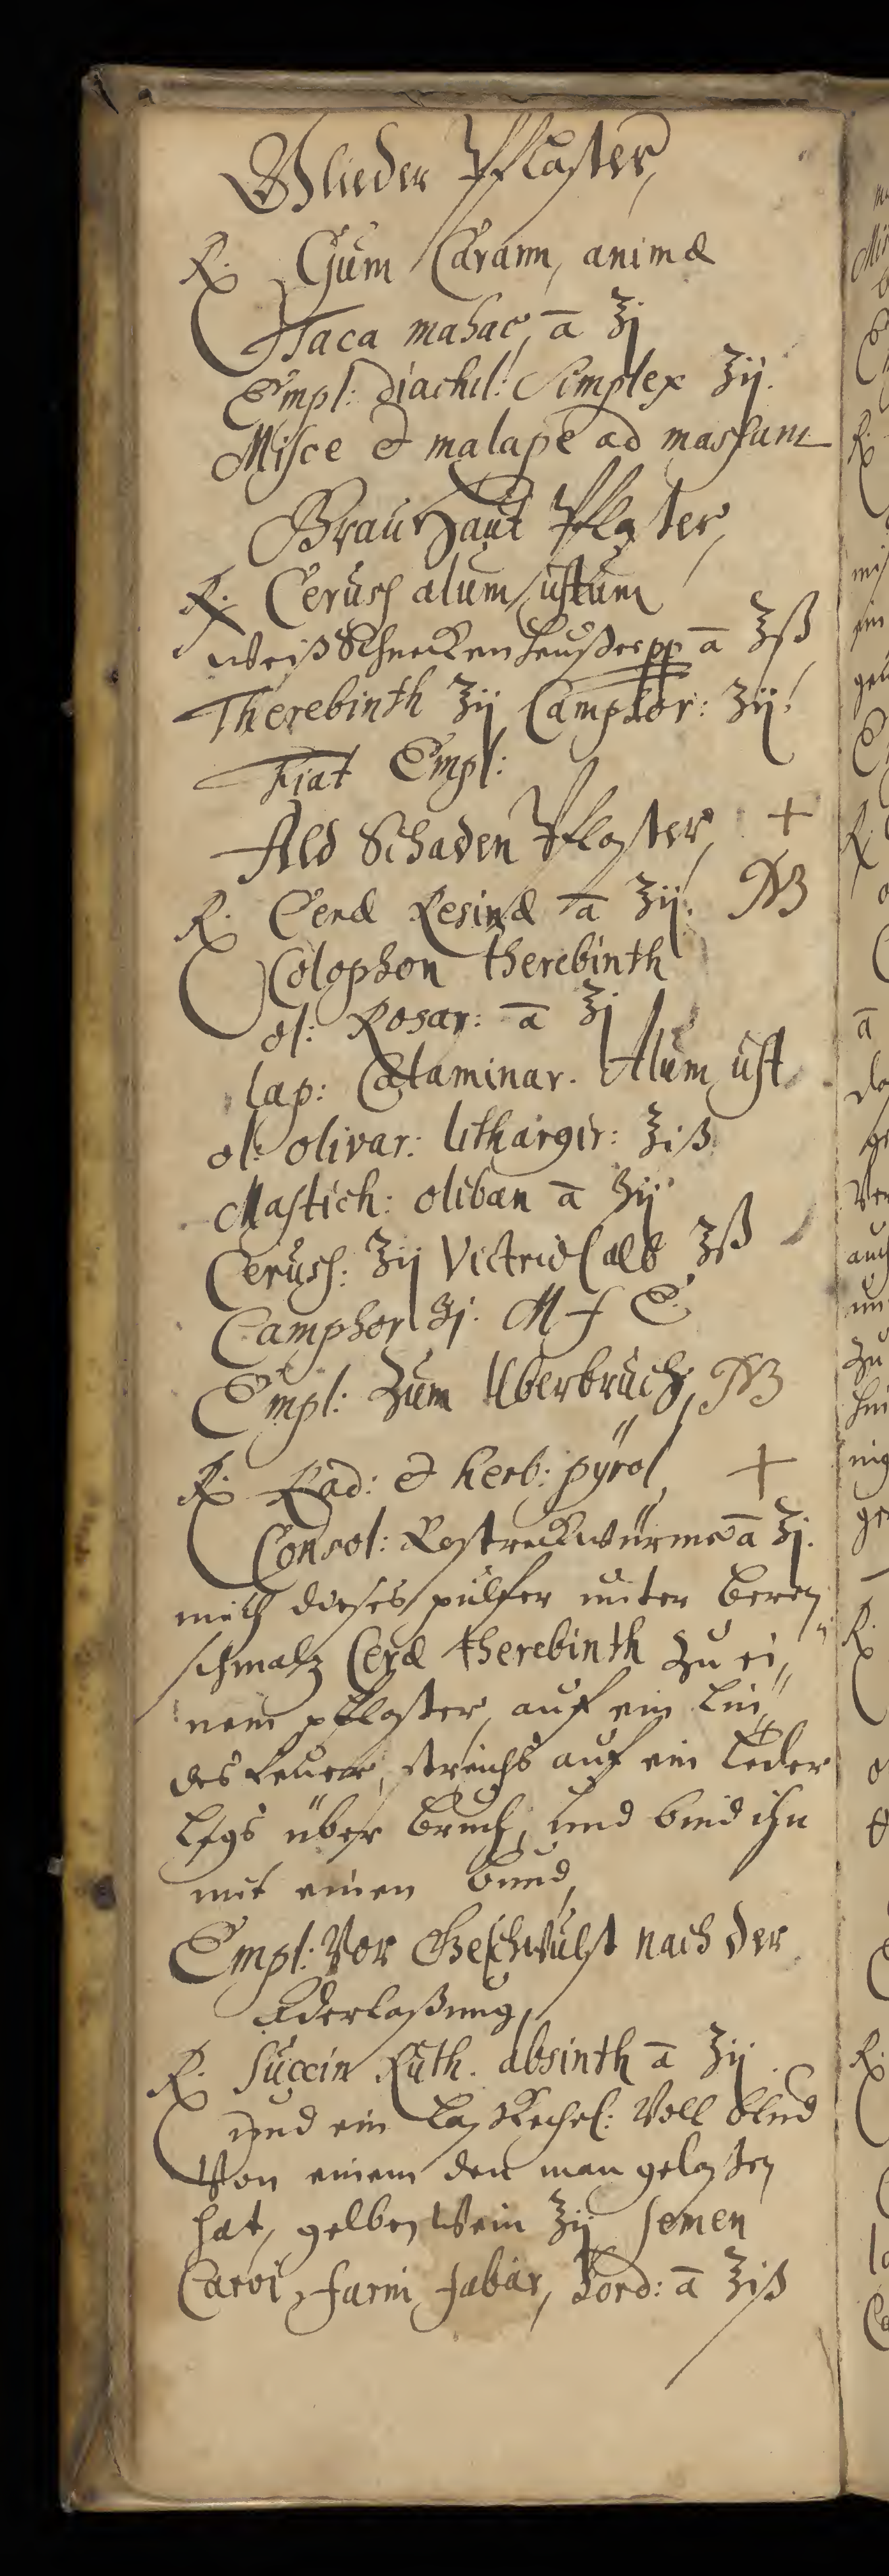 Glieder Pflaster,
℞. Gum Carann, animæ
Taca mahac, ā ℥j
Empl: diachil: Simplex ℥ij.
Misce & malaxe ad massam
Brauhaut Pflaster,
℞. Ceruss alum ustum
weiß Schnecken heußer pp ā ℥ß
Therebinth ℥ij Camphor: ʒij.
Fiat Empl:
Ald Schaden Pflaster, +
℞. Ceræ Resinæ ā ℥ij. NB
Colophon therebinth
ol: Rosar: ā ℥j
lap: Calaminar. Alum ust
ol: olivar: lithargir: ℥iß
Mastich: oliban ā ʒij
Ceruss: ʒij Victriol alb ℥ß
Camphor ʒj. M f E.
Empl: Zum Uberbruch, NB
℞. Rad: & herb: pÿrol, +
Consol: ā ℥j.
misch dieses pulfer unter beren
schmalz Ceræ therebinth zu ei„
nem pflaster, auf ein lin„
des feuer, streichs auf ein leder
legs über bruch, und bind ihn
mit einen bund,
Empl: Vor Geschwulst nach der
Aderlaßung,
℞. Succin Ruth. absinth ā ℥ij
und ein Voll blud
Von einem den man gelasten
hat, gelben Wein ℥ij Semen
Carvi, farni fabar, hord: ā ℥iß